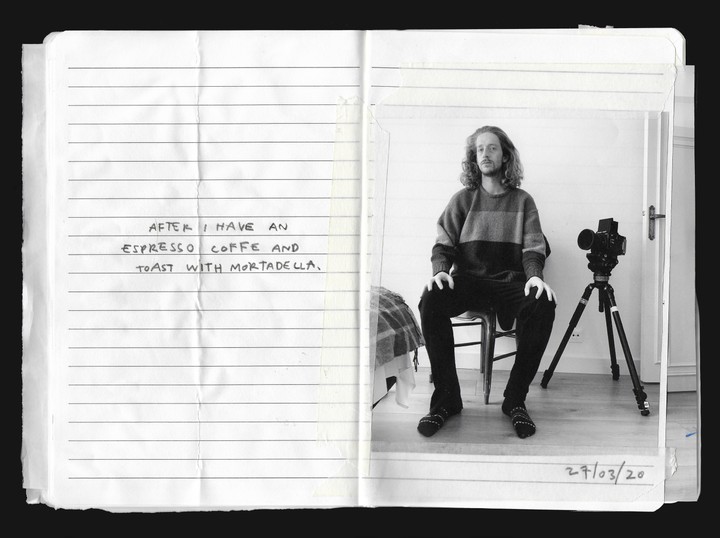 AFTER I HAVE AN
ESPRESSO COFFE AND
TOAST WITH MORTADELLA.
27/03/20